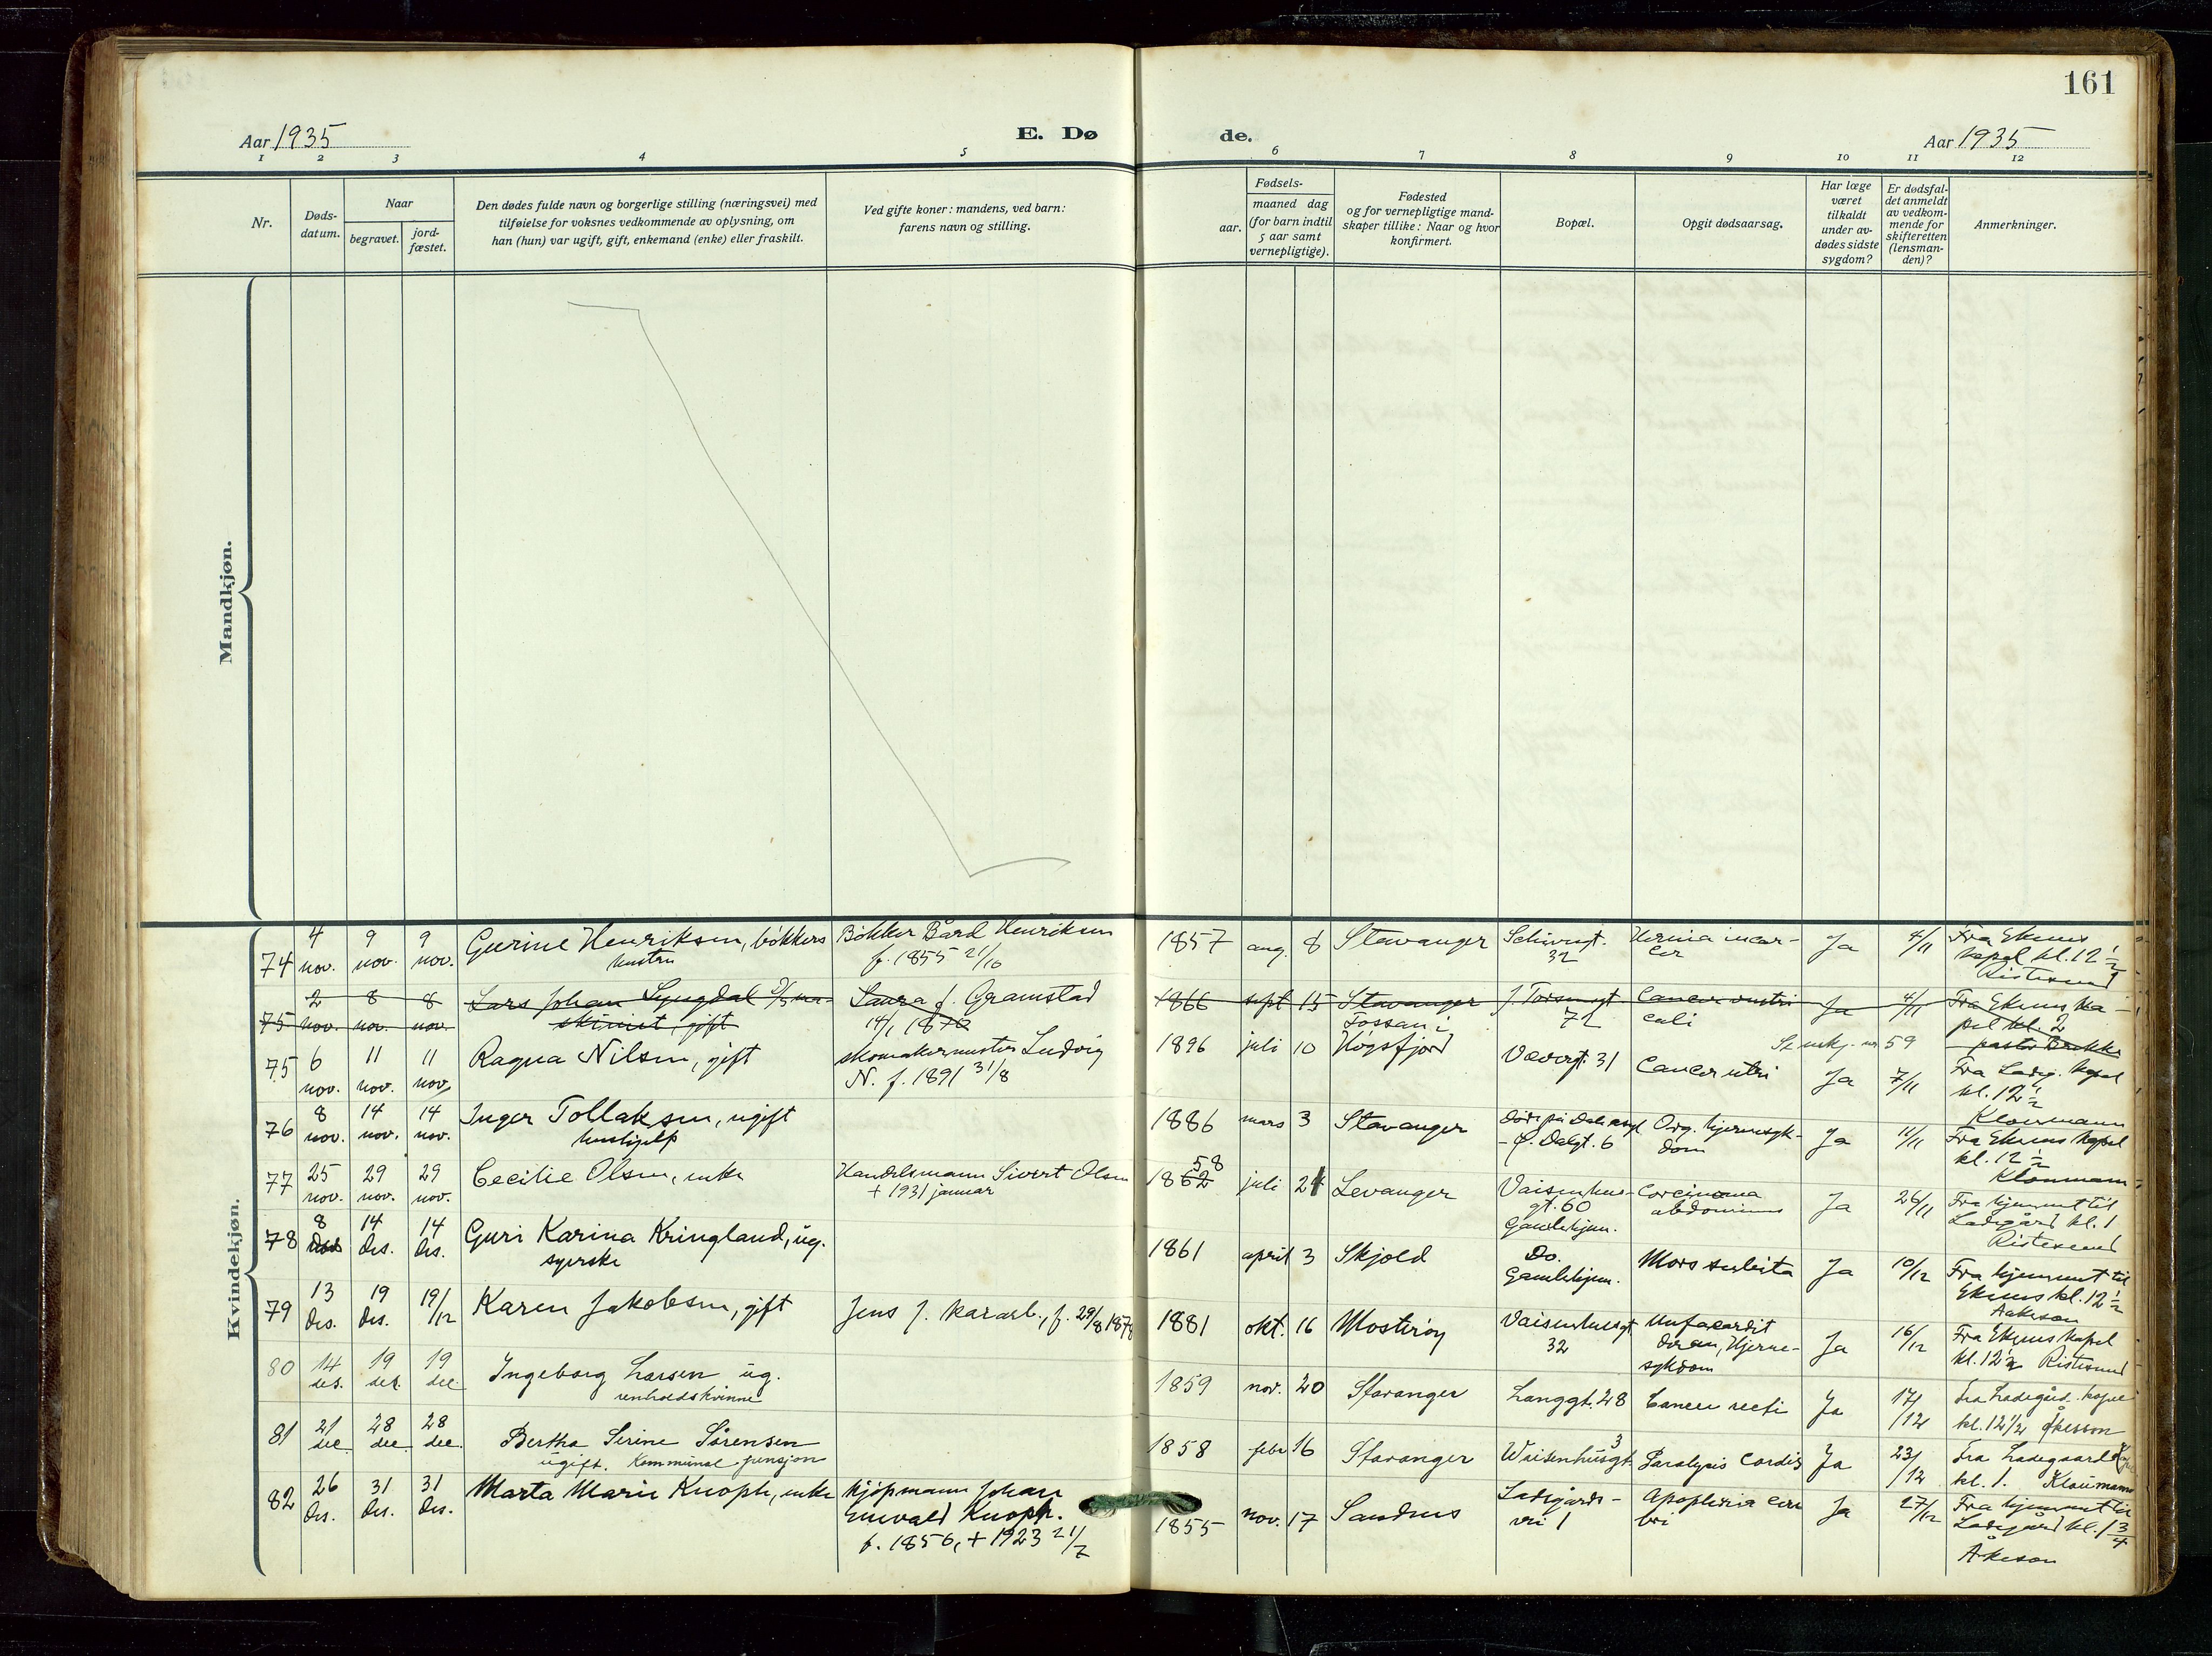 161
Aar 1935
E. Dø
de.
Aar 1935
1 2 3 4 5 6 7 8 9 10 11 12
Nr.
Døds-
datum.
Naar
begravet.
jord-
fæstet.
Den dødes fulde navn og borgerlige stilling (næringsvei) med
tilføielse for voksnes vedkommende av oplysning, om
han (hun) var ugift, gift, enkemand (enke) eller fraskilt.
Ved gifte koner: mandens, ved barn:
farens navn og stilling.
Fødsels-
aar.
maaned dag
(for barn indtil
5 aar samt
vernepligtige).
Fødested
og for vernepligtige mand-
skaper tillike: Naar og hvor
konfirmert.
Bopæl.
Opgit dødsaarsag.
Har læge
været
tilkaldt
under av-
dødes sidste
sygdom?
Er dødsfal-
det anmeldt
av vedkom-
mende for
skifteretten
(lensman-
den)?
Anmerkninger.
Mandkjøn.
Kvindekjøn.
74
4
nov.
9
nov.
9
nov.
Gurine Henriksen, bøkkers
hustru
Bøkker Bård Henriksen
f. 1855 21/10
1857
aug. 8
Stavanger
32
Hernia incar-
cer
Ja
4/11
Fra Ekenes
kapel kl. 12 1/2
Ristesund
75
2
nov.
8
nov.
8
nov.
Lars Johan Lyngdal
skinist, gift
Laura f. Gramstad
14/1 1870
1866
sept 15
Stavanger
J. Torsensgt
72
Cancer ventri
culi
Ja
4/11
Fra Ekenes ka-
pel kl. 2
75
6
nov.
11
nov.
11
nov.
Ragna Nilsen, gift
skomakermester Ludvig
N. f. 1891 31/8
1896
juli 10
Fossan i
Høgsfjord
Væverg. 31
Cancer uteri
59
Ja
7/11
Fra Ladeg. kapel
kl. 12 1/2
Klovmann
76
8
nov.
14
nov.
14
nov.
Inger Tollaksen, ugift
hushjelp
1886
mars 3
Stavanger
Døde på Dale asyl
- Dalgt. 6
Org. hjernesyk-
dom
Ja
11/11
Fra Ekenes kapel
kl. 12 1/2
Klovmann
77
25
nov.
29
nov.
29
nov.
Cecilie Olsen, enke
Handelsmann Sivert Olsen
+ 1931 januar
58
1862
juli 24
Levanger
Vaisenhus-
gt. 60
Gamlehjem.
Carcinoma
abdominis
Ja
26/11
Fra hjemmet til
Ladegård kl. 1
Ristesund
78
8
des.
14
des.
14
des.
Guri Karina Kringland, ug.
syerske
1861
april 3
Skjold
Do.
Gamlehjem.
Mors subita
Ja
10/12
Fra hjemmet til
Ekenes kl. 12 1/2
Aakeson
79
13
des.
19
des.
19/12
Karen Jakobsen, gift
Jens J. kararb., f. 29/8 1878
1881
okt. 16
Mosterøy
Vaisenhusgt
32
Ja
16/12
Fra Ekenes kapel
kl. 12 1/2 Ristesund
80
14
des.
19
des.
19
dec
Ingeborg Larsen ug.
renholdskvinne
1859
nov. 20
Stavanger
Langgt. 28
Cancer recti
Ja
17/12
Fra Ladegård. kapel
kl. 12 1/2 Åkesson
81
21
dec
28
dec
28
dec.
Bertha Serine Sørensen
ugift. Kommunal pensjon
1858
febr 16
Stavanger
3
Waisenhusgt.
Paralysis Cordis
Ja
23/12
Fra Ladegaard
kl. 1. Klaumann
82
26
des.
31
des.
31
des.
Marta Marie Knoph, enke
Kjøpmann Johan
Enevald Knoph.
f. 1856, + 1923 21/7
1855
nov. 17
Sandnes
Ladegårds-
vei 1
Apoplexia cere
bri
Ja
27/12
Fra hjemmet til
Ladegård kl. 1 3/4
Åkeson